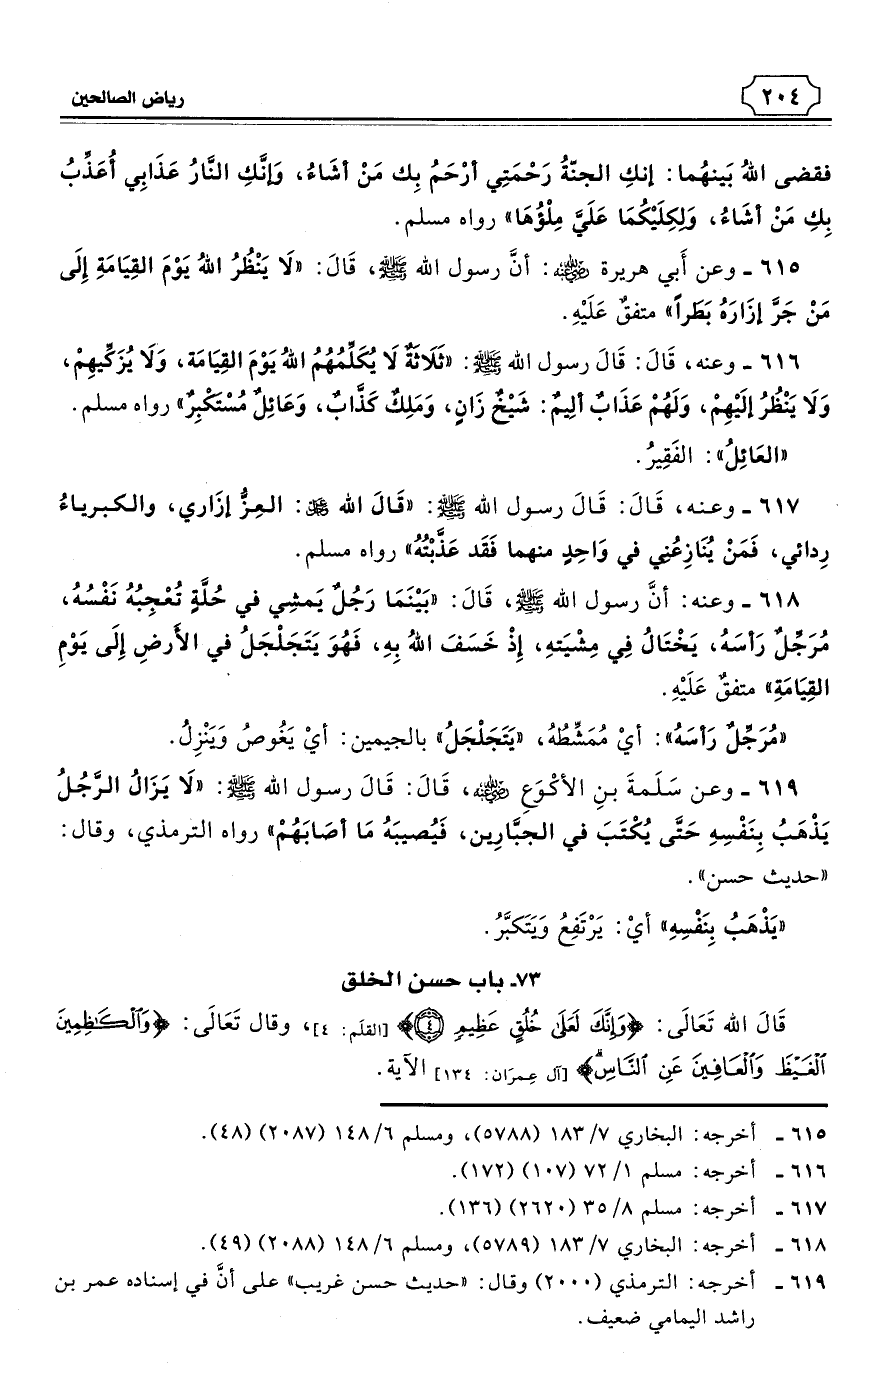 ٢٠٤
رياض الصالحين
فقضى اللهُ بَينهُما: إنكِ الجنّةُ رَحْمَتِي أرْحَمُ بِك مَنْ أشَاءُ، وَإنَّكِ النَّارُ عَذَابِي أُعَذِّبُ
بِكِ مَنْ أشَاءُ، وَلِكِلَيْكُمَا عَلَيَّ مِلْؤُهَا» رواه مسلم.
٦١٥ ـ وعن أَبي هريرة رضي الله عنه: أنَّ رسول الله ﷺ، قَالَ: «لَا يَنْظُرُ اللهُ يَوْمَ القِيَامَةِ إِلَى
مَنْ جَرَّ إزَارَهُ بَطَراً» متفقٌ عَلَيْهِ.
٦١٦ ـ وعنه، قَالَ: قَالَ رسول الله ﷺ: «ثَلَاثَةٌ لَا يُكَلِّمُهُمُ اللهُ يَوْمَ القِيَامَة، وَلَا يُزَكِّيهِمْ،
وَلَا يَنْظُرُ إلَيْهِمْ، وَلَهُمْ عَذَابٌ أليِمٌ: شَيْخٌ زَانٍ، وَمَلِكٌ كَذَّابٌ، وَعَائِلٌ مُسْتَكْبِرٌ» رواه مسلم.
«العَائِلُ»: الفَقِيرُ.
٦١٧ ـ وعنه، قَالَ: قَالَ رسول الله ﷺ: «قَالَ الله ﷻ: العِزُّ إزَاري، والكبرياءُ
رِدائي، فَمَنْ يُنَازِعُنِي في وَاحِدٍ منهما فَقَد عَذَّبْتُهُ» رواه مسلم.
٦١٨ ـ وعنه: أنَّ رسول الله ﷺ، قَالَ: «بَيْنَمَا رَجُلٌ يَمشِي في حُلَّةٍ تُعْجِبُهُ نَفْسُهُ،
مُرَجِّلٌ رَأسَهُ، يَخْتَالُ فِي مِشْيَتهِ، إِذْ خَسَفَ اللهُ بِهِ، فَهُوَ يَتَجَلْجَلُ في الأَرضِ إِلَى يَوْمِ
القِيَامَةِ» متفقٌ عَلَيْهِ.
«مُرَجِّلٌ رَأسَهُ»: أيْ مُمَشِّطُهُ، «يَتَجَلْجَلُ» بالجيمين: أيْ يَغُوصُ وَيَنْزِلُ.
٦١٩ ـ وعن سَلَمةَ بنِ الأكْوَعِ رضي الله عنه، قَالَ: قَالَ رسول الله ﷺ: «لَا يَزَالُ الرَّجُلُ
يَذْهَبُ بِنَفْسِهِ حَتَّى يُكْتَبَ في الجبَّارِين، فَيُصيبَهُ مَا أصَابَهُمْ» رواه الترمذي، وقال:
«حديث حسن».
«يَذْهَبُ بِنَفْسِهِ» أيْ: يَرْتَفِعُ وَيَتَكَبَّرُ.
٧٣ـ باب حسن الخلق
قَالَ الله تَعَالَى: ﴿وَإِنَّكَ لَعَلَىٰ خُلُقٍ عَظِيمٍ ﴿٤﴾﴾ [القلَم: ٤]، وقال تَعَالَى: ﴿وَٱلْكَٰظِمِينَ
ٱلْغَيْظَ وَٱلْعَافِينَ عَنِ ٱلنَّاسِۗ﴾ [آل عِمرَان: ١٣٤] الآية.
٦١٥ ـ أخرجه: البخاري ٧/ ١٨٣ (٥٧٨٨)، ومسلم ٦/ ١٤٨ (٢٠٨٧) (٤٨).
٦١٦ ـ أخرجه: مسلم ١/ ٧٢ (١٠٧) (١٧٢).
٦١٧ ـ أخرجه: مسلم ٨/ ٣٥ (٢٦٢٠) (١٣٦).
٦١٨ ـ أخرجه: البخاري ٧/ ١٨٣ (٥٧٨٩)، ومسلم ٦/ ١٤٨ (٢٠٨٨) (٤٩).
٦١٩ ـ أخرجه: الترمذي (٢٠٠٠) وقال: «حديث حسن غريب» على أنَّ في إسناده عمر بن
راشد اليمامي ضعيف.